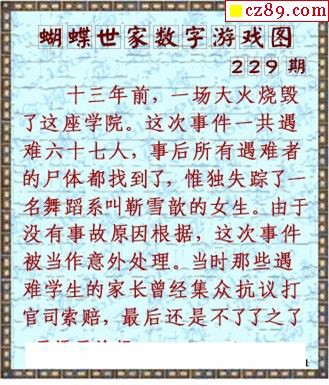 cz89.com
蝴蝶世家数字游戏图
229 期
十三年前,一场大火烧毁
了这座学院。这次事件一共遇
难六十七人,事后所有遇难者
的尸体都找到了,惟独失踪了一
名舞蹈系叫靳雪歆的女生。由于
没有事故原因根据,这次事件
被当作意外处理。当时那些遇
难学生的家长曾经集众抗议打
官司索赔,最后还是不了了之了